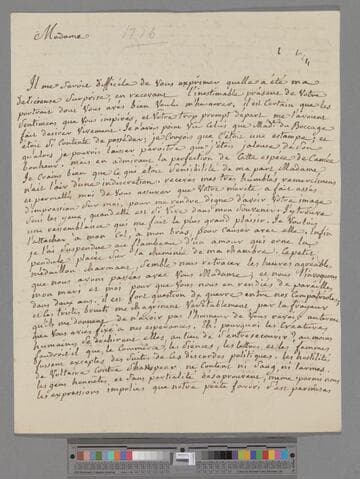 1776
Madame
Il me seroit difficile de vous exprimer quelle a été ma
délicieuse surprise, en recevant l'inestimable présent de votre
portrait dont vous avés bien voulu m'honorer, il est certain que les
sentimens que vous inspirés, et votre trop prompt départ me l'avoient
fait désirer vivement. Je n'avois point vu celui que Mad.e du Boccage
étoit si contente de posséder; je croyois que c'étoit une estampe; et
qu'alors je pouvois laisser paroître que j'étois jalouse de son
bonheur. mais en admirant la perfection de cette espece de Camée
Je crains bien que ce qui étoit sensibilité de ma part Madame,
n'ait l'air d'une indiscretion. recevés mes très humbles remercimens
et permettés moi de vous assurer que votre mérite a fait assés
d'impression sur moi, pour me rendre digne d'avoir votre image
sous les yeux, quand elle est si bien dans mon souvenir. J'y trouve
une ressemblance qui me fait le plus grand plaisir. Je voulois
l'attacher à mon Col, à mon bras, pour l'avoir avec moi. Enfin
je l'ai suspendue au flambeau d'un amour qui orne la
pendule placée sur la cheminée de ma chambre. Ce petit
médaillon charmant, semble nous retracer les heures agréables
que nous avons passées avec vous Madame; et nous l'invoquons
mon mari et moi pour que vous nous en rendiés de pareilles,
dans deux ans. il est fort question de guerre entre nos Compatriotes,
et ces tristes bruits me chagrinent véritablement par la frayeur
qu'ils me donnent de n'avoir pas l'honneur de vous revoir au terme
que vous aviés fixé à nos espérances. Ah! pourquoi les Creatures
humaines se déchirent elles au lieu de s'entresecourir? au moins
faudroit il que le Commerce, les Sciences, les lettres, et les femmes
fussent exceptés des suites de ces discordes politiques. les hostilités
de Voltaire contre Shakespear ne coutent ni sang, ni larmes.
les gens honnetes, et sans partialité désaprouvent, même parmi nous
les expressions impolies que notre poëte favori s'est permises